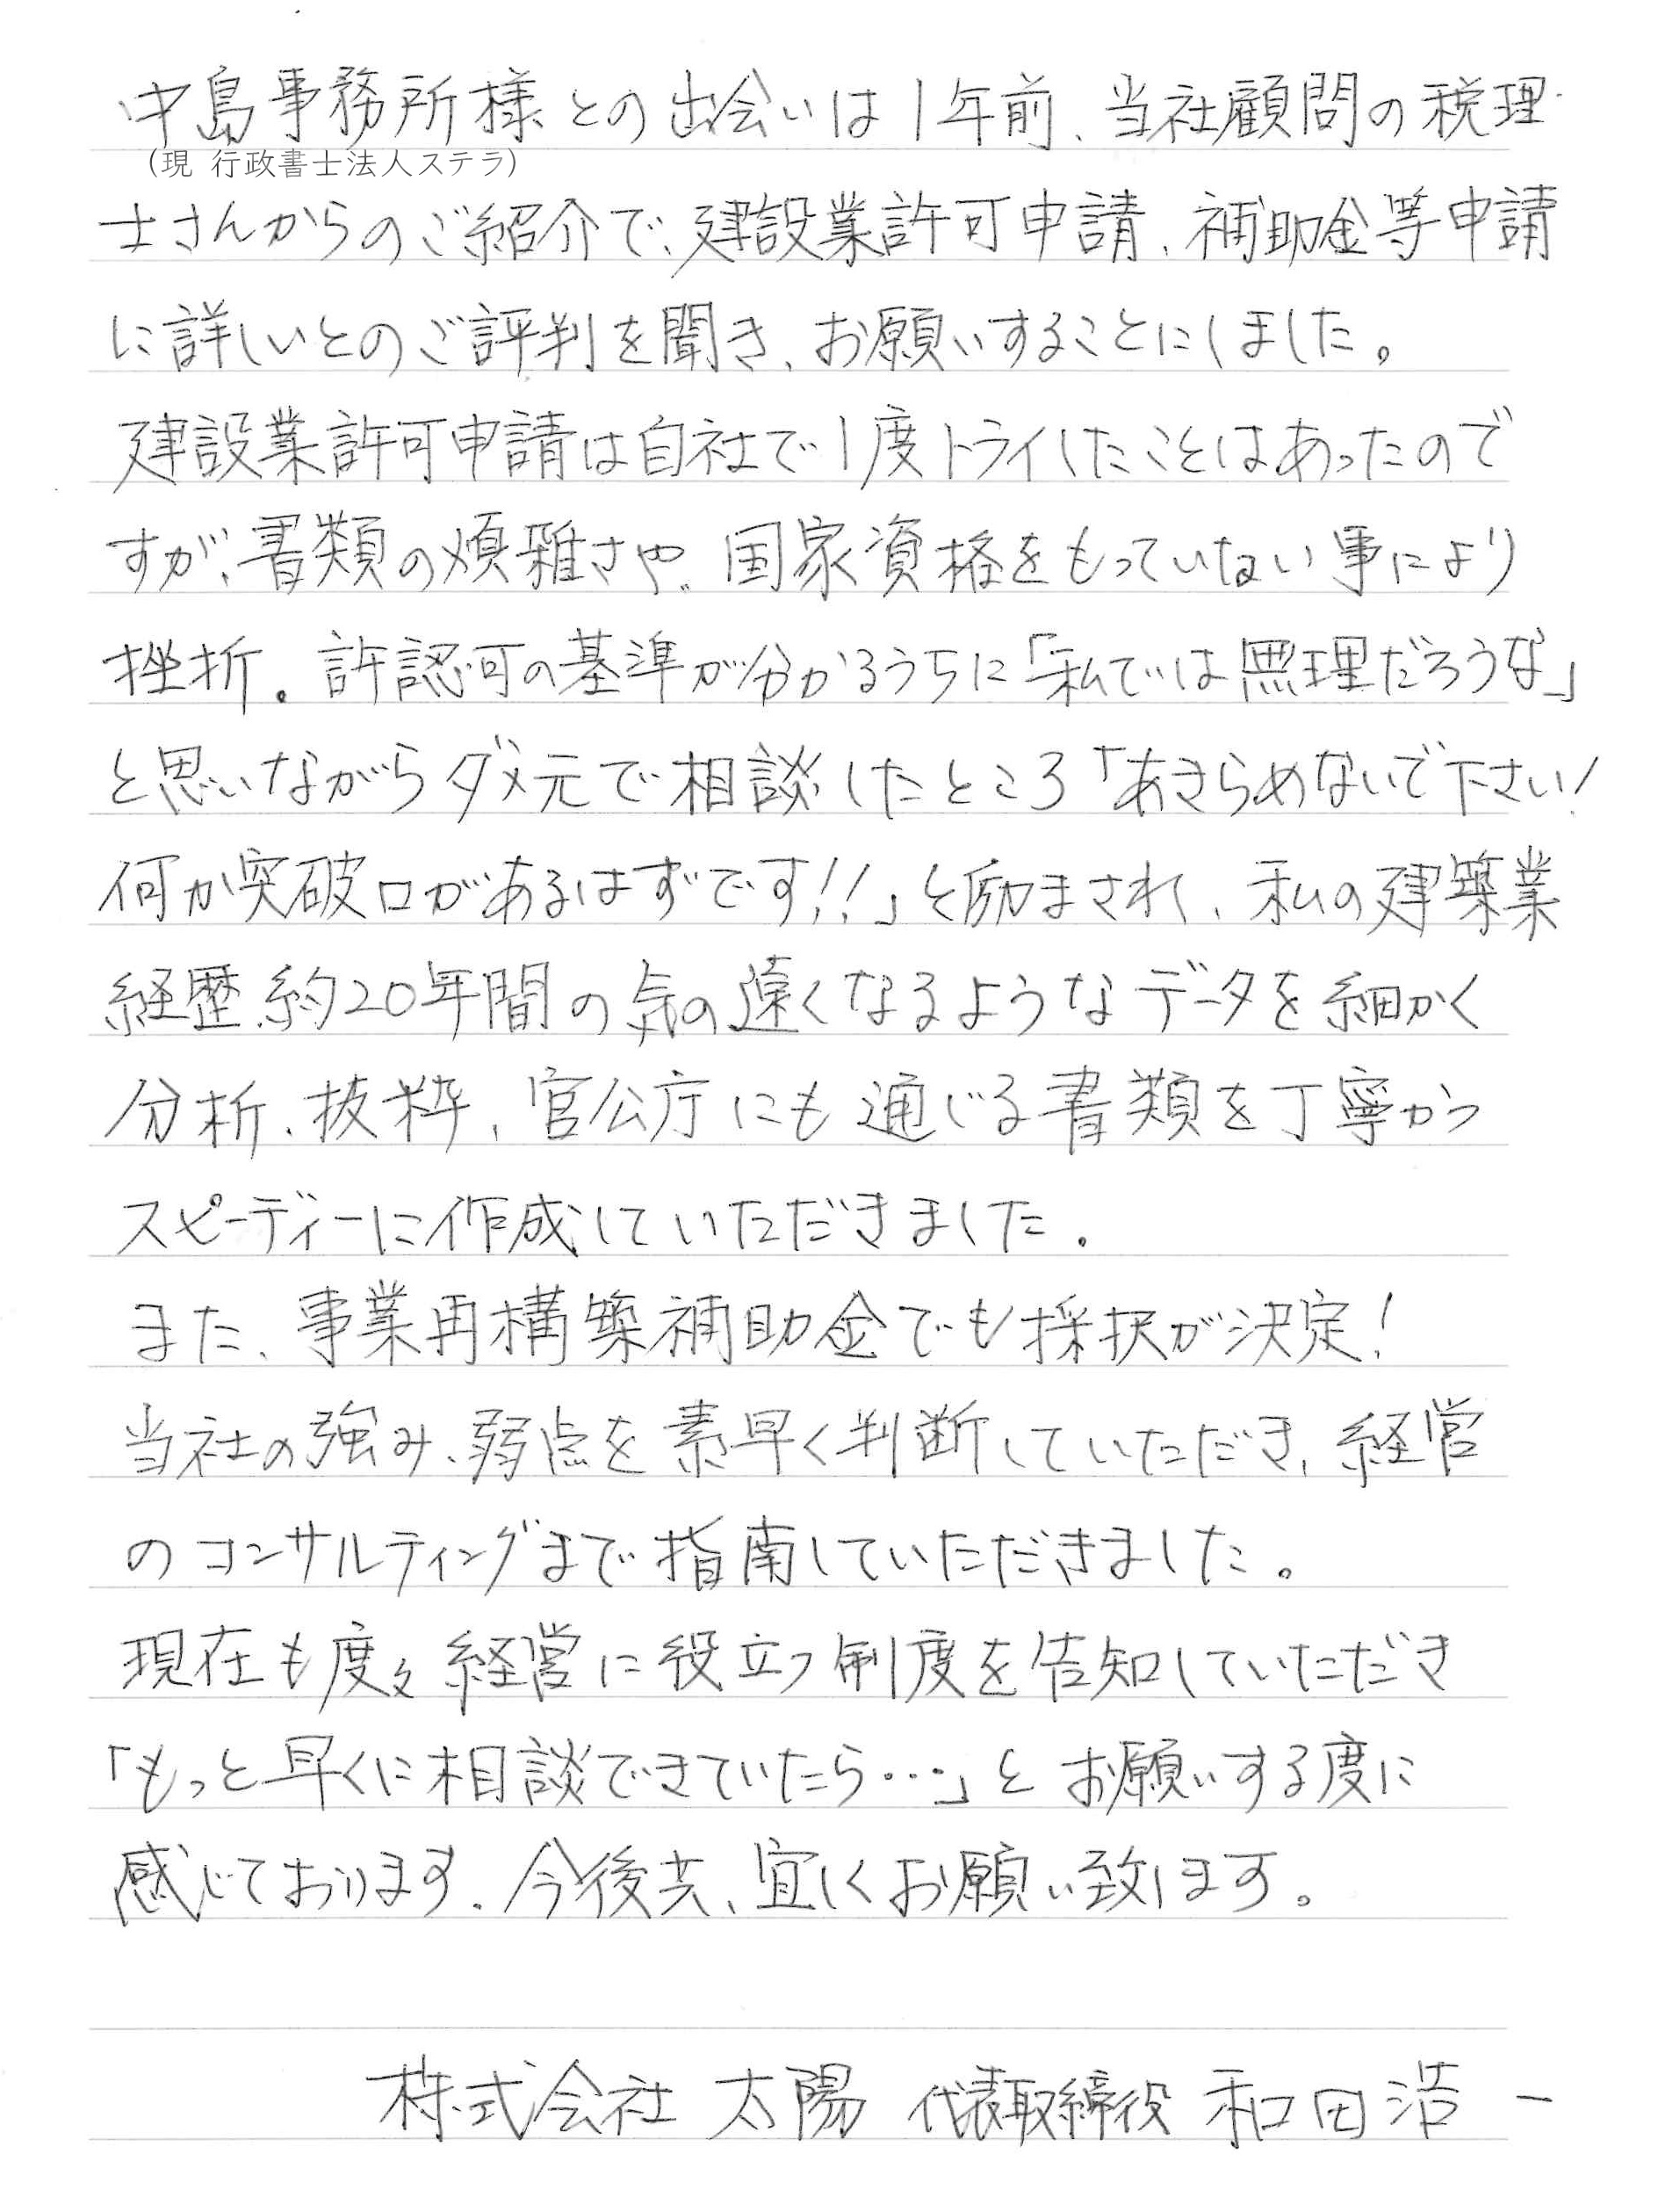 中島事務所様との出会いは1年前、当社顧問の税理
(現 行政書士法人ステラ)
士さんからのご紹介で、建設業許可申請、補助金等申請
に詳しいとのご評判を聞き、お願いすることにしました。
建設業許可申請は自社で1度トライしたことはあったので
すが、書類の煩雑さや、国家資格をもっていない事により
挫折。許認可の基準が分かるうちに「私では無理だろうな」
と思いながらダメ元で相談したところ「あきらめないで下さい!
何か突破口があるはずです!!」と励まされ、私の建築業
経歴、約20年間の気の遠くなるようなデータを細かく
分析、抜粋、官公庁にも通じる書類を丁寧かつ
スピーディーに作成していただきました。
また、事業再構築補助金でも採択が決定!
当社の強み、弱点を素早く判断していただき、経営
のコンサルティングまで指南していただきました。
現在も度々経営に役立つ制度を告知していただき
「もっと早くに相談できていたら…」とお願いする度に
感じております。今後共、宜しくお願い致します。
株式会社 太陽 代表取締役 和田浩一